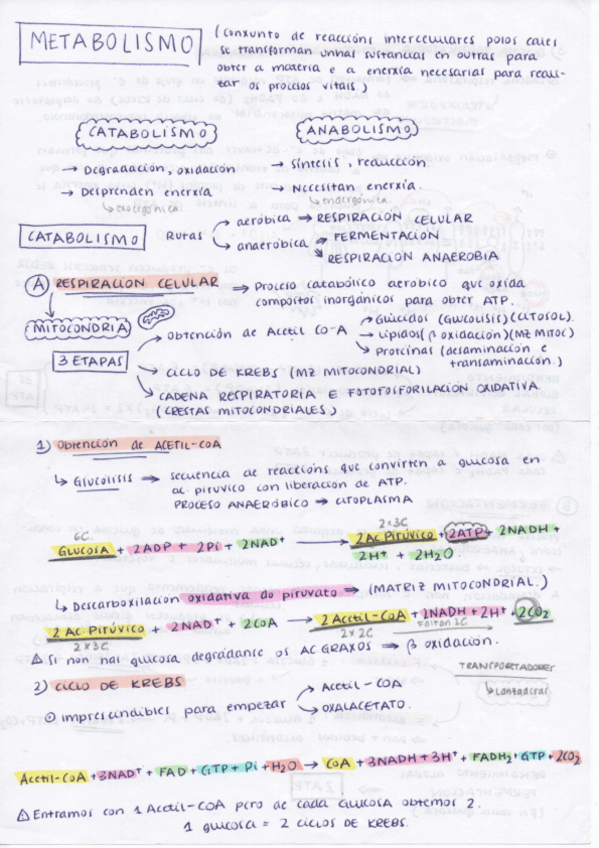 METABOLISMO
(Conxunto de reaccións intercelulares polos cales
se transforman unhas sustancias en outras para
obter a materia e a enerxía necesarias para reali-
zar os procesos vitais)
CATABOLISMO
ANABOLISMO
→ Degradación, oxidación
→ Síntesis, reducción
→ Desprenden enerxía
→ Necesitan enerxía.
↳ exergónica
↳ endergónica
CATABOLISMO Rutas
aeróbica → RESPIRACIÓN CELULAR
anaeróbica → FERMENTACIÓN
→ RESPIRACIÓN ANAEROBIA
A RESPIRACIÓN CELULAR → Proceso catabólico aerobico que oxida
compostos inorgánicos para obter ATP.
MITOCONDRIA
3 ETAPAS
→ Obtención de Acetil Co-A
→ Glúcidos (GLUCOLISIS) (CITOSOL)
→ Lípidos (β oxidación) (MZ MITOC)
→ Proteínas (desaminación e
transaminación.)
→ CICLO DE KREBS (MZ MITOCONDRIAL)
→ CADENA RESPIRATORIA E FOTOFOSFORILACIÓN OXIDATIVA.
(CRESTAS MITOCONDRIALES)
1) Obtención de ACETIL-COA
↳ Glucolisis → secuencia de reaccións que convirten a glucosa en
ac. pirúvico con liberación de ATP.
PROCESO ANAERÓBICO → CITOPLASMA
6C
2x3C
GLUCOSA + 2ADP + 2Pi + 2NAD⁺ → 2 Ac Pirúvico + 2ATP + 2NADH +
2H⁺ + 2H₂O
↳ Descarboxilación oxidativa do piruvato → (MATRIZ MITOCONDRIAL)
2 Ac Pirúvico + 2NAD⁺ + 2COA → 2 Acetil-CoA + 2NADH + 2H⁺ + 2CO₂
2x3C
2x2C
Faltan 2C
△ Si non hai glucosa degrádanse os AC GRAXOS → β oxidación.
TRANSPORTADORES
↳ Lanzadeiras
2) CICLO DE KREBS
⊙ imprescindibles para empezar
→ Acetil-COA
→ OXALACETATO.
Acetil-CoA + 3NAD⁺ + FAD + GTP + Pi + H₂O → COA + 3NADH + 3H⁺ + FADH₂ + GTP + 2CO₂
△ Entramos con 1 Acetil-CoA pero de cada Glucosa obtemos 2.
1 glucosa = 2 ciclos de KREBS.